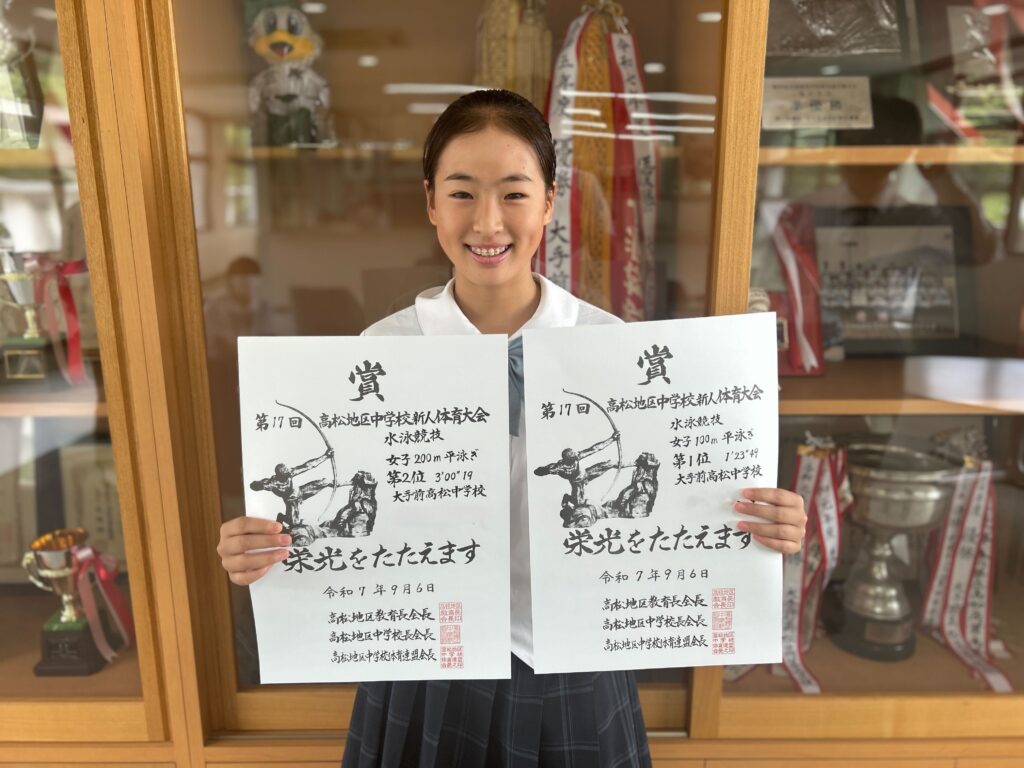 賞
第17回 高松地区中学校新人体育大会
水泳競技
女子200m平泳ぎ
第2位 3'00"19
大手前高松中学校
栄光をたたえます
令和7年9月6日
高松地区教育長会長
高松地区中学校長会長
高松地区中学校体育連盟会長
賞
第17回 高松地区中学校新人体育大会
水泳競技
女子100m平泳ぎ
第1位 1'23"49
大手前高松中学校
栄光をたたえます
令和7年9月6日
高松地区教育長会長
高松地区中学校長会長
高松地区中学校体育連盟会長
大手前